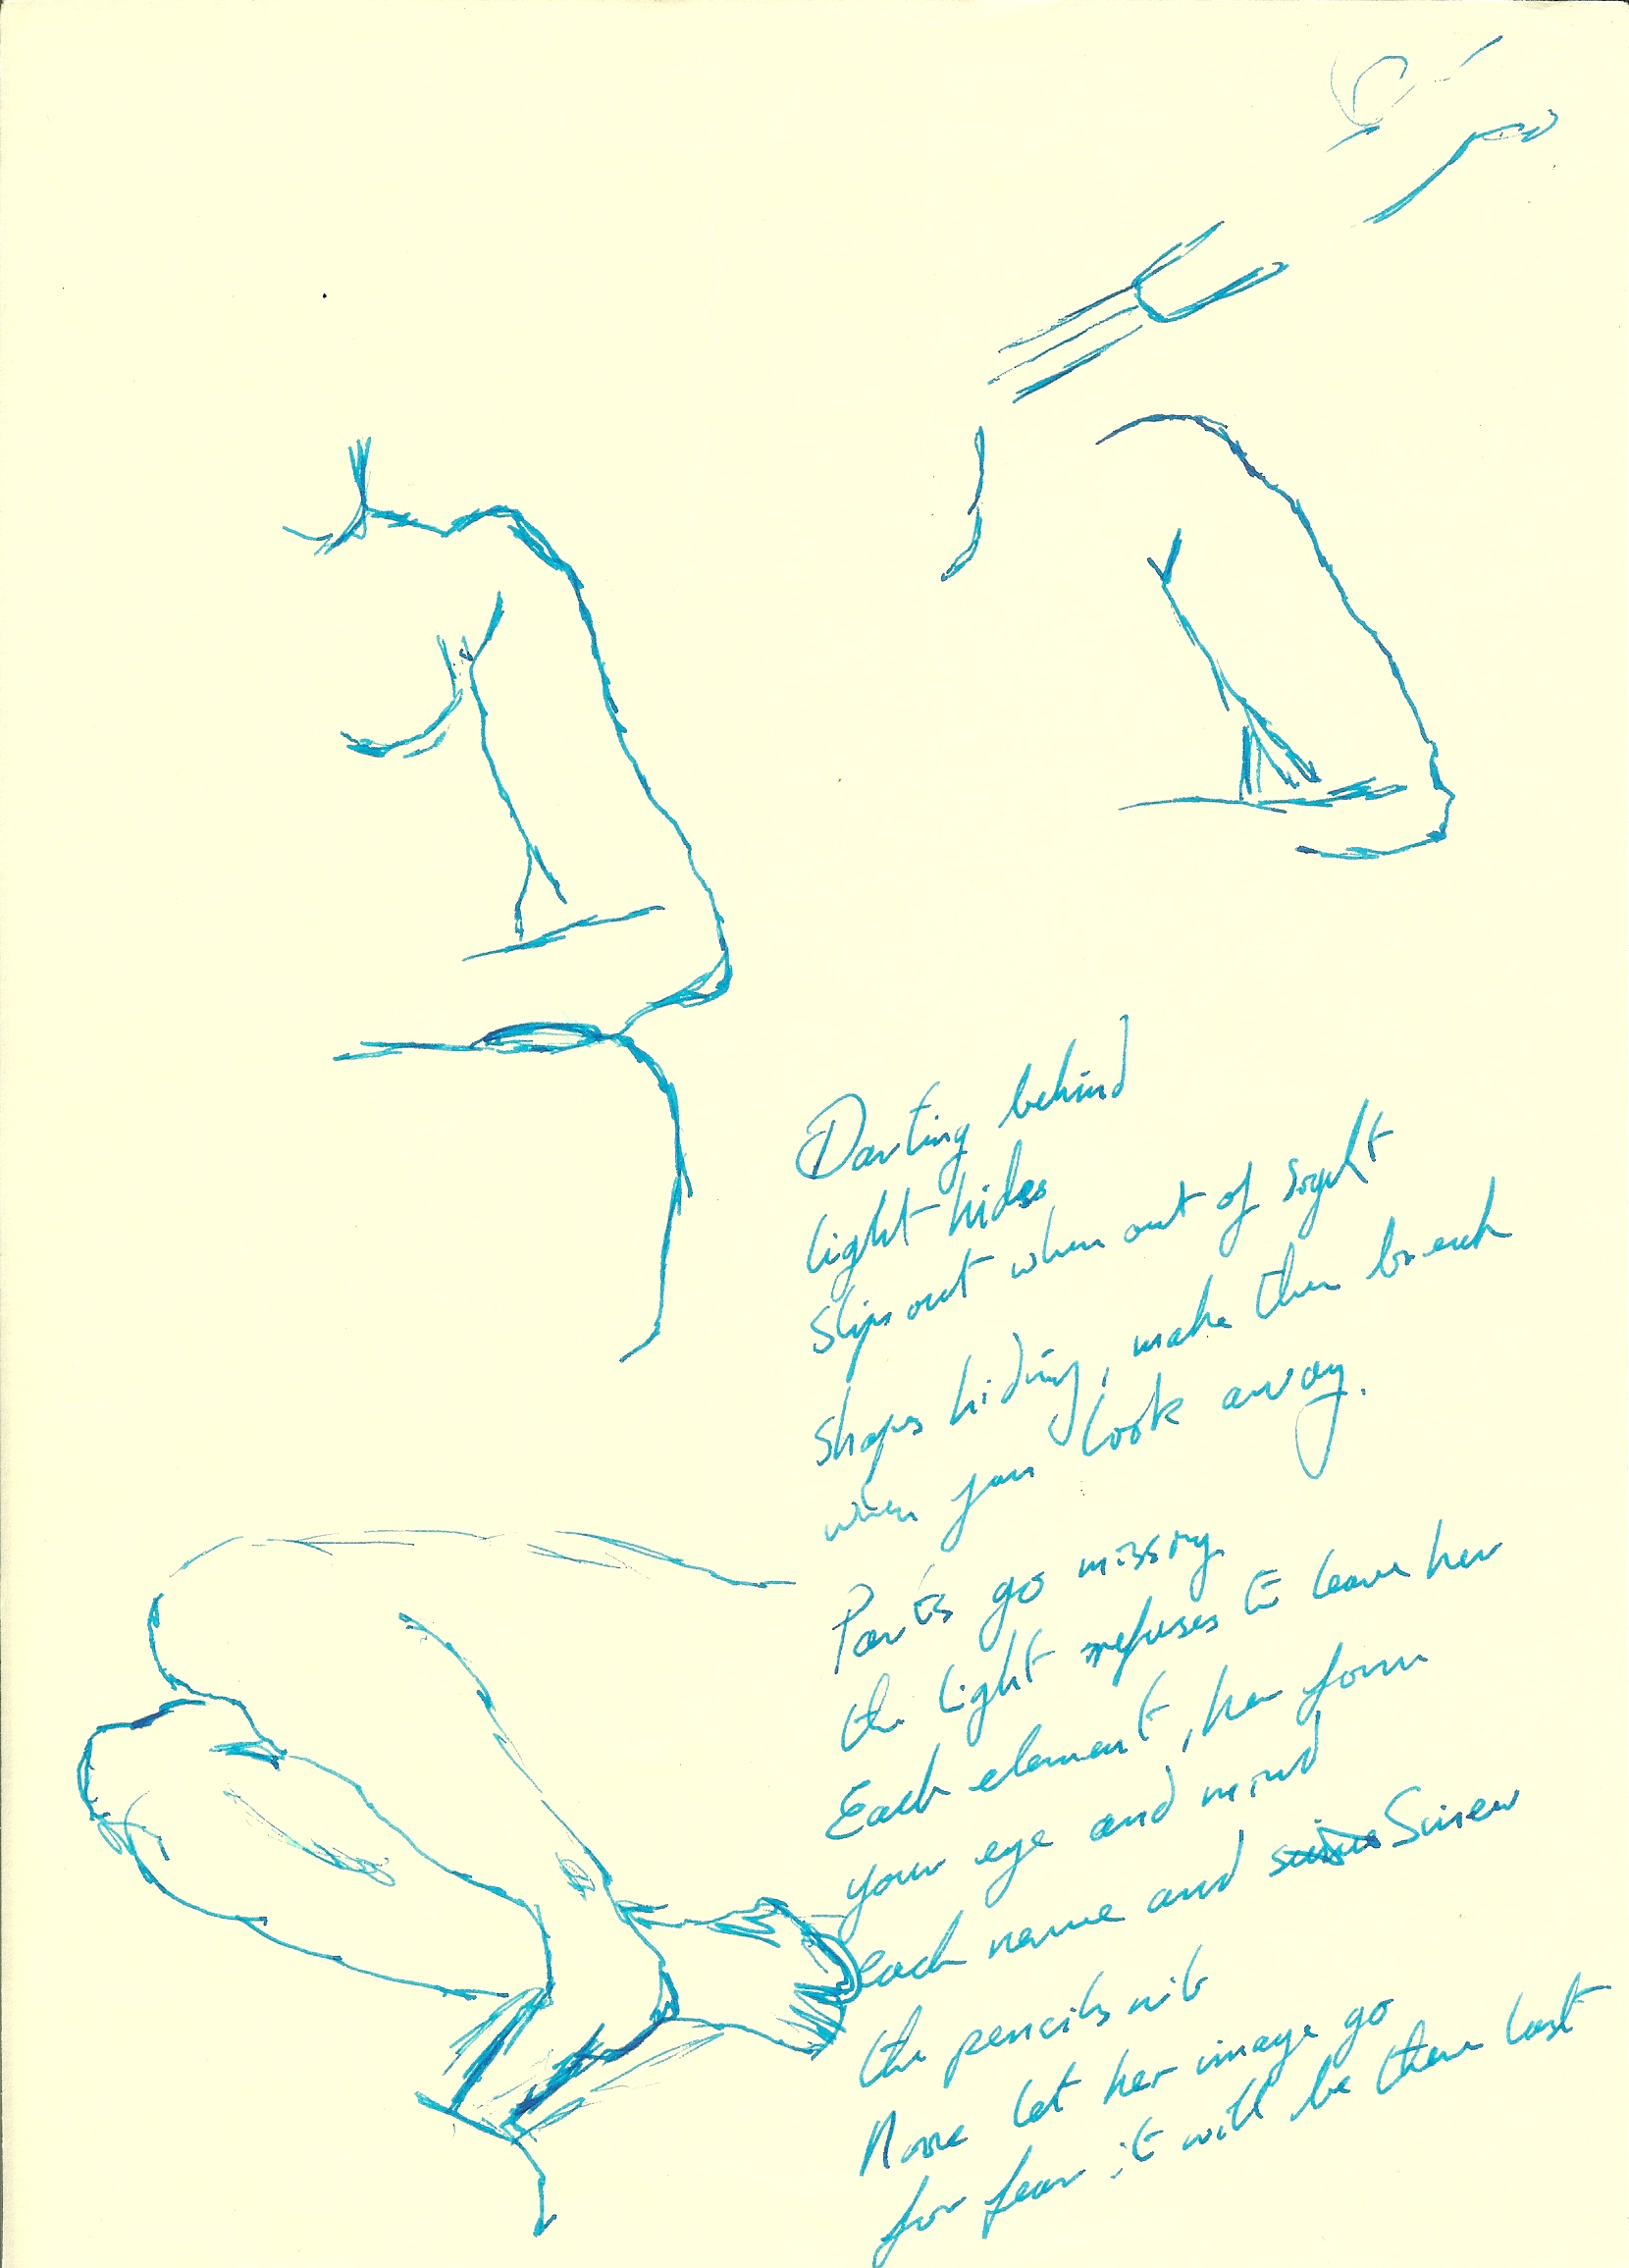 Darting behind
light hides
slips out when out of sight
shapes hiding, make them break
when you look away.
Parts go missing
the light refuses to leave her
Each element, her form
your eye and mind
each name and Sinew
the pencils nib
None let her image go
for fear it will be there last